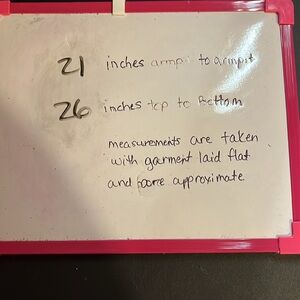 21 inches armpi to armpit
26 inches top to Bottom
measurements are taken
with garment laid flat
and approximate